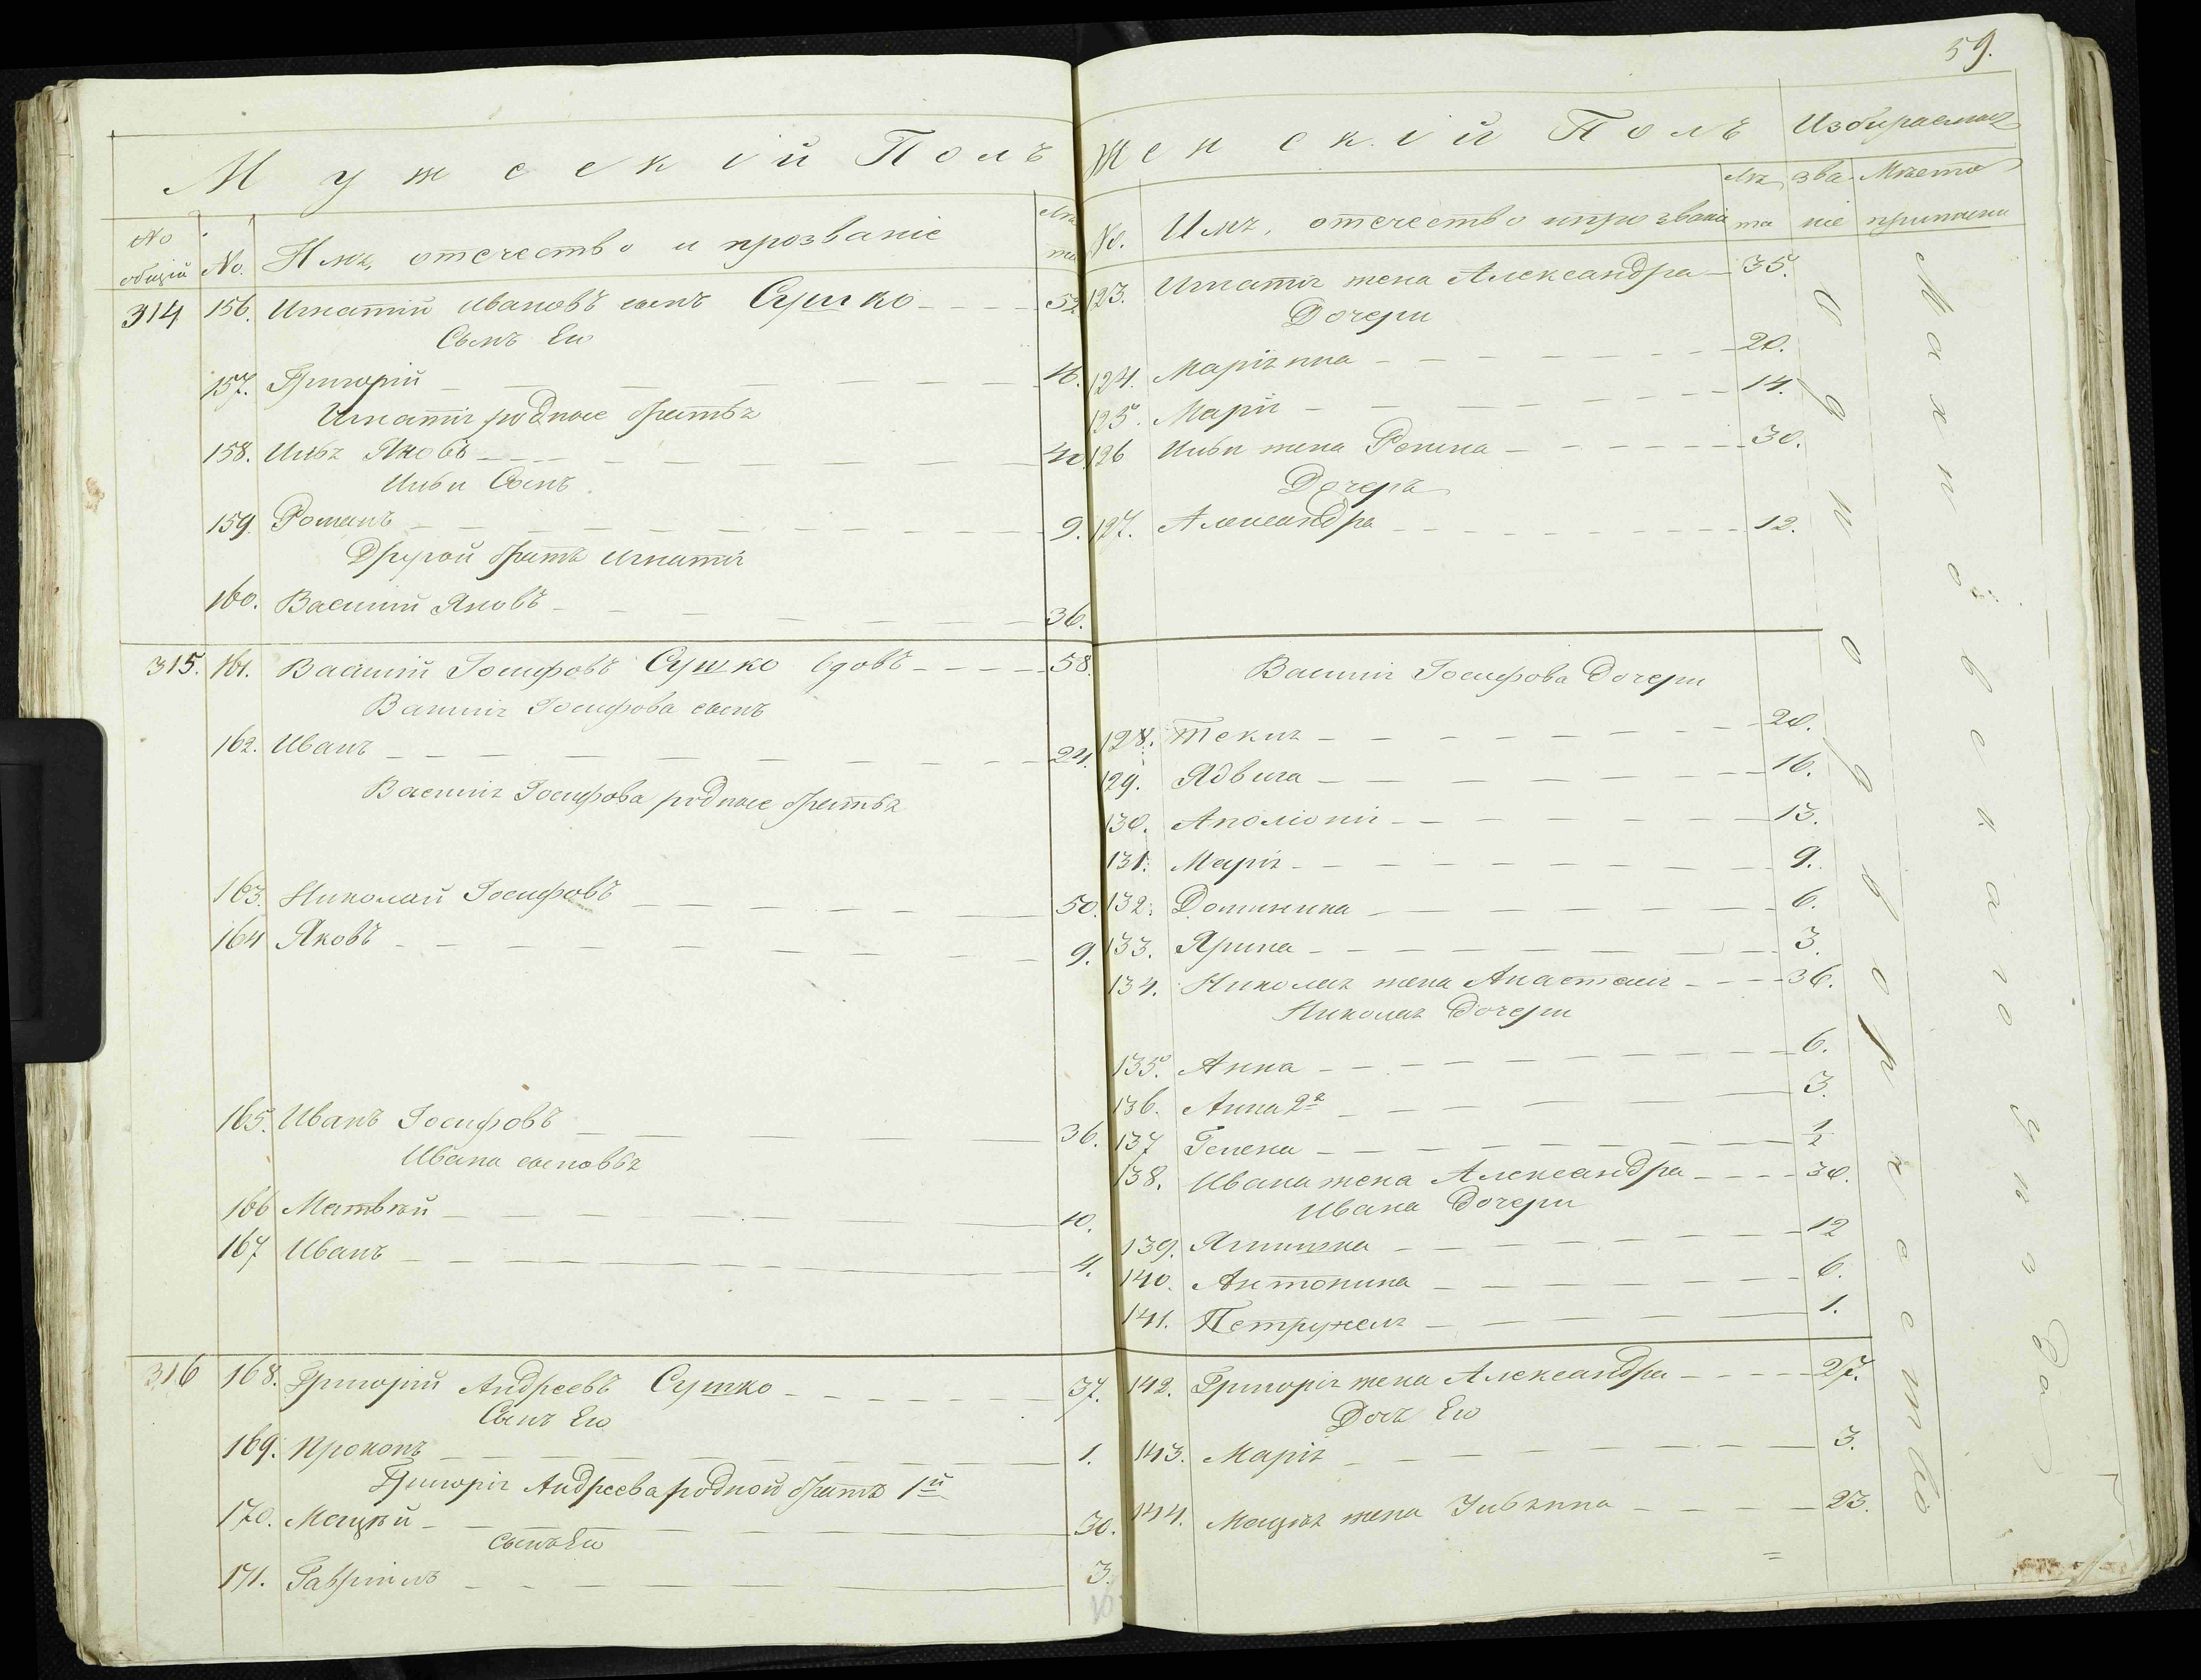 59.
Мужескій Полъ
№ общій
№.
Имя, отечество и прозваніе
Лѣта
314 156. Игнатій Ивановъ сынъ Сушко 52.
Сынъ Его
157. Григорій 16.
Игнатія родные братья
158. Илья Яковъ 40.
Ильи Сынъ
159. Романъ 9.
Другой братъ Игнатія
160. Василій Яковъ 36.
315. 161. Василій Іосифовъ Сушко вдовъ 58.
Василія Іосифова сынъ
162. Иванъ 24.
Василія Іосифова родные братья
163. Николай Іосифовъ 50.
164 Яковъ 9.
165. Иванъ Іосифовъ 36.
Ивана сыновья
166 Матвѣй 10.
167 Иванъ 4.
316 168. Григорій Андреевъ Сушко 37.
Сынъ Его
169. Прокопъ 1.
Григорія Андреева родной братъ 1й
170. Мацѣй 30.
сынъ Его
171. Гавріилъ 3.
Женскій Полъ
№.
Имя, отечество и прозваніе
Лѣта
Избираемыя
званіе
Мѣсто приписки
123. Игнатія жена Александра 35.
Дочери
124. Маріянна 20.
125. Марія 14.
126 Ильи жена Регина 30.
Дочеря
127. Александра 12.
Василія Іосифова дочери
128. Текля 20.
129. Ядвига 16.
130. Аполіонія 13.
131. Марія 9.
132. Доминика 6.
133. Ярина 3.
134. Николая жена Анастасія 36.
Николая дочери
135. Анна 6.
136. Анна 2я 3.
137 Гелена 1/2
138. Ивана жена Александра 30.
Ивана дочери
139. Агнишка 12
140. Антонина 6.
141. Петрунеля 1.
142. Григорія жена Александра 27.
Дочь Его
143. Марія 3.
144. Мацѣя жена Ульянна 23.
Однодворчество
Махновскаго уѣзда